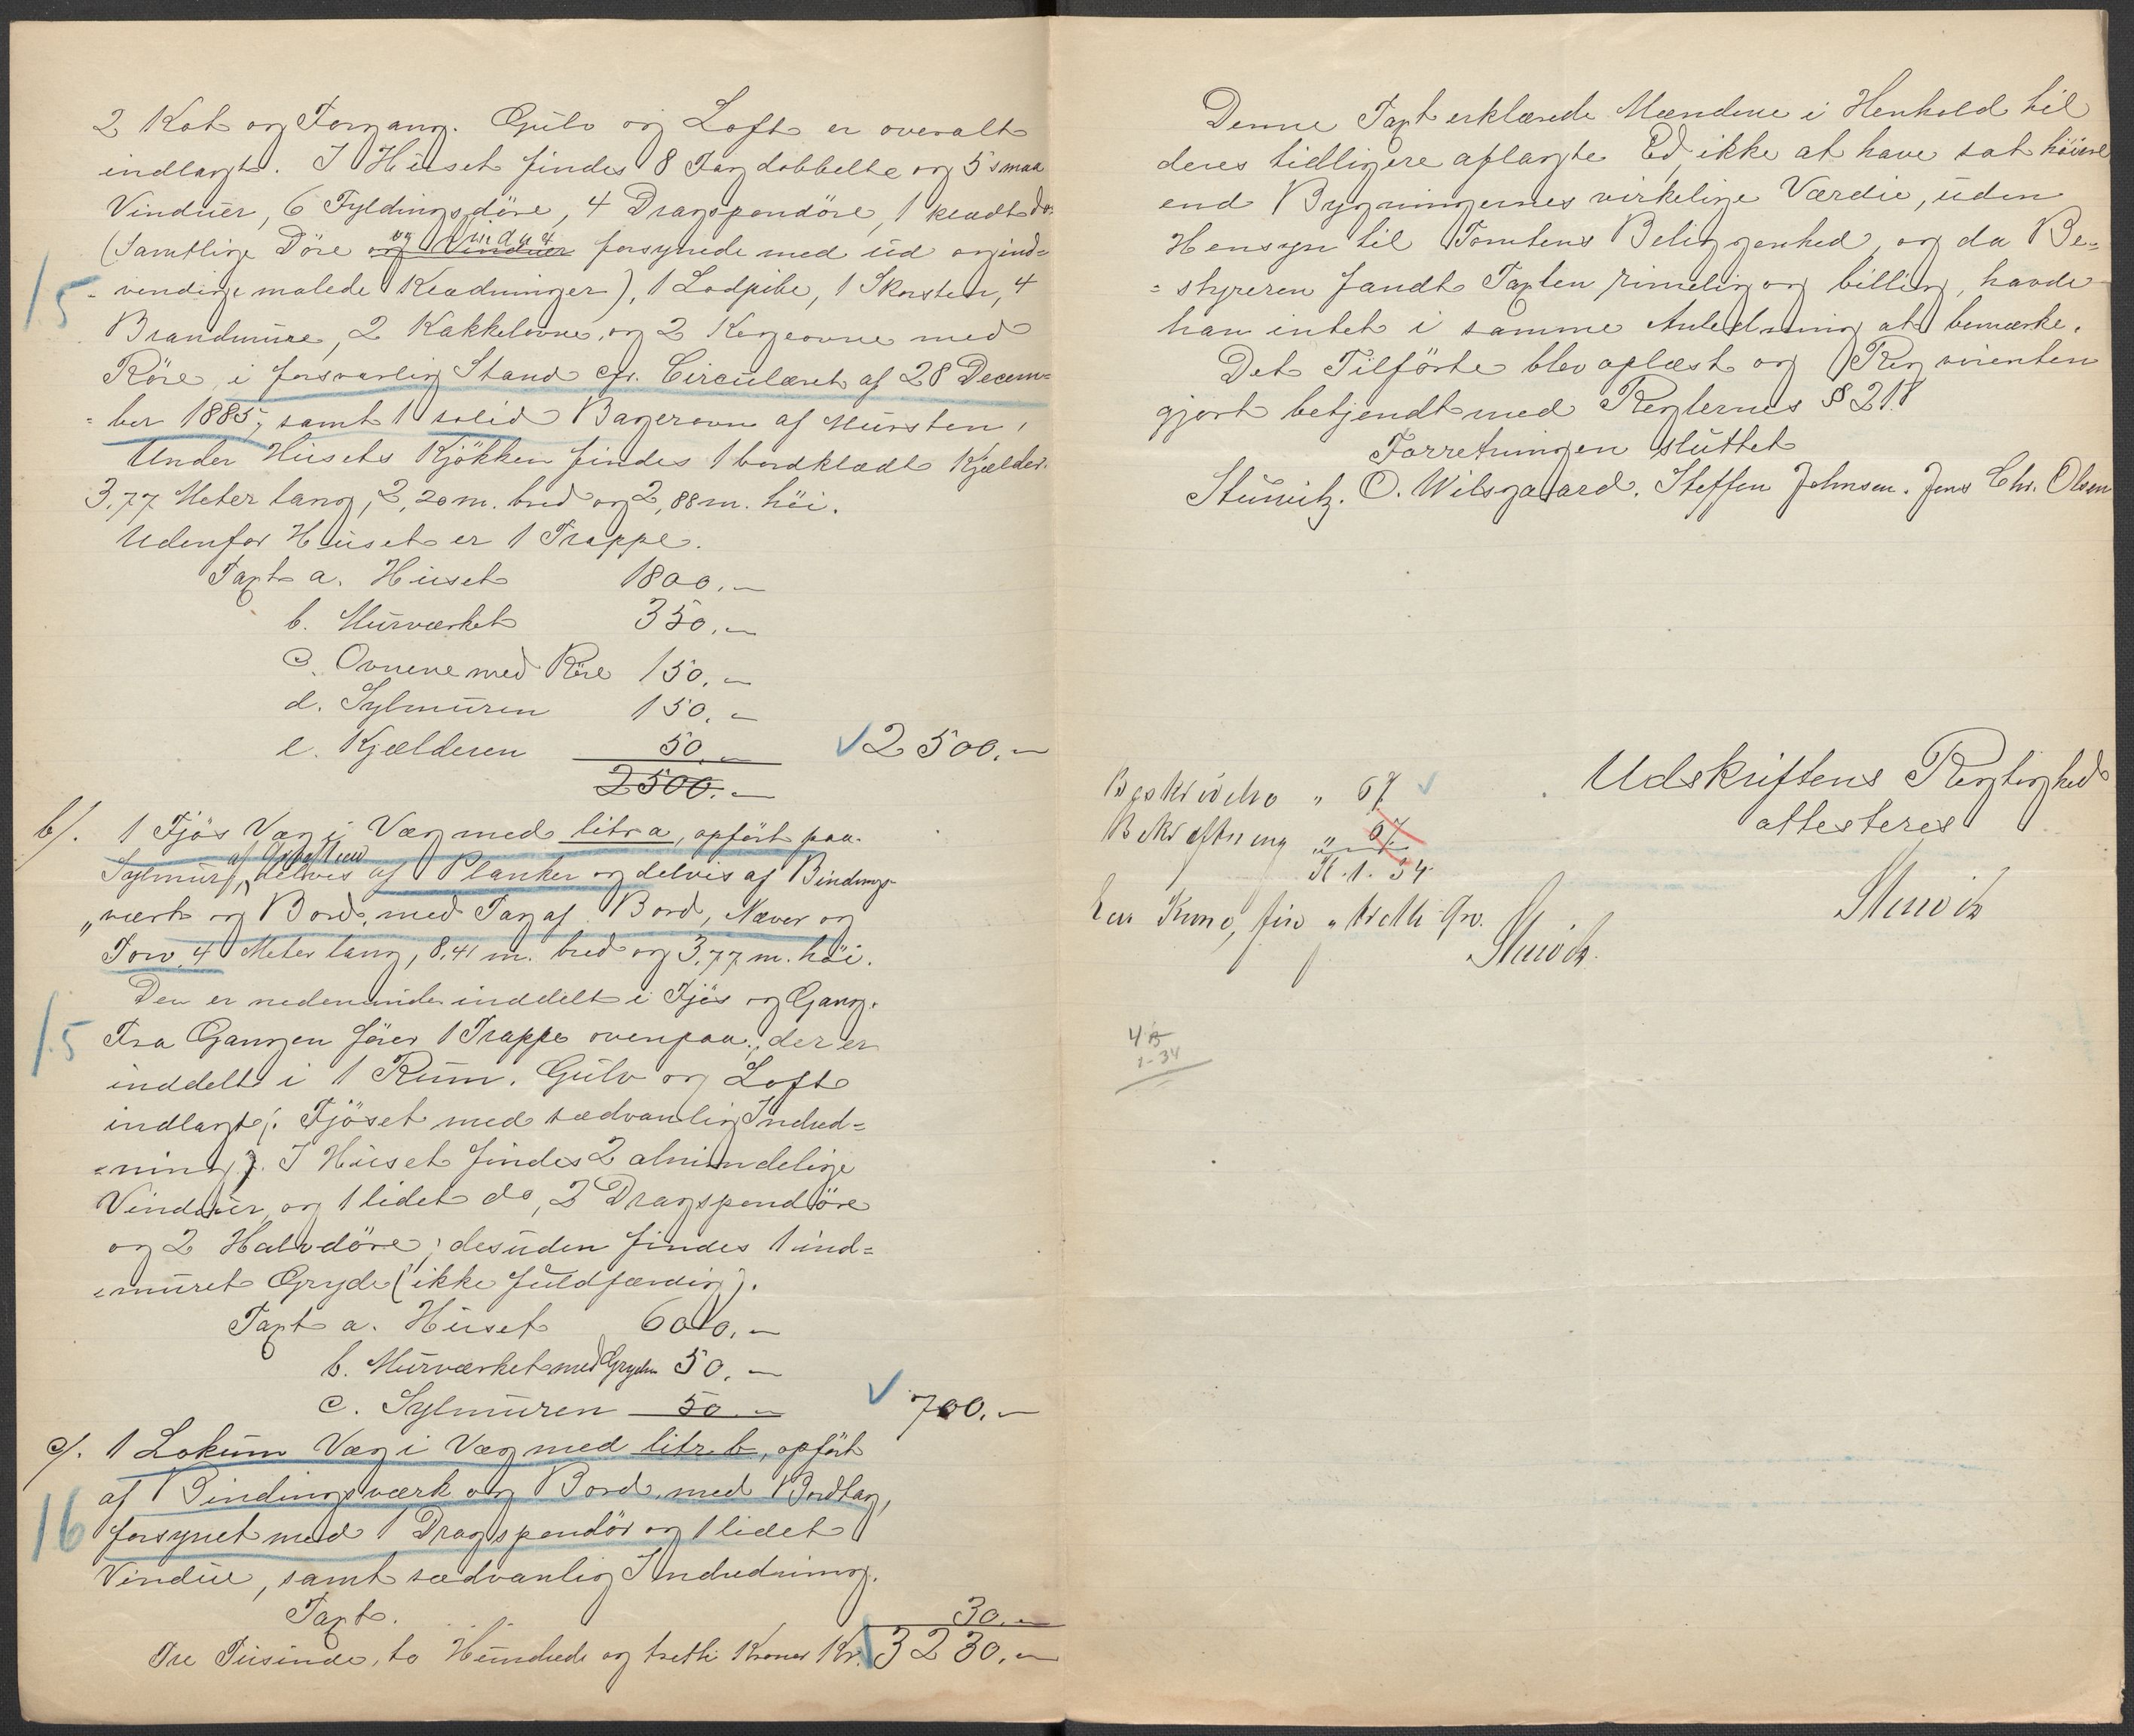 2 Kot og Forgang. Gulv og Loft er overalt
indlagt. I Huset findes 8 Fag dobbelte og 5 smaa
Vinduer, 6 Fyldingsdöre, 4 Dragspondöre, 1 klædt do.
(Samtlige Döre og Vinduer forsynede med ud og ind=
=vendige malede Klædninger), 1 Lodpibe, 1 Skorsten, 4
15
Brandmure, 2 Kakkelovne og 2 Kogeovne med
Röre, i forsvarlig Stand cfr. Circulæret af 28 Decem=
=ber 1885, samt 1 solid Bagerovn af Mursten,
Under Husets Kjökken findes 1 bordklædt Kjælder
3,77 Meter lang, 2,20 m. bred og 2,88 m. höi.
Udenfor Huset er 1 Trappe.
Taxt a. Huset 1800.-
b. Murværket 350.-
c. Ovnene med Röre 150.-
d. Sylmuren 150.-
e. Kjælderen 50.- 2500.-
2500.-
b/. 1 Fjös Væg i Væg med litra a, opfört paa
af Graasteen
Sylmur, delvis af Planker og delvis af Bindings-
"værk og Bord, med Tag af Bord, Næver og
Torv, 4 Meter lang, 8,41 m. bred og 3,77 m. höi.
Den er nedenunder inddelt i Fjös og Gang.
15
Fra Gangen förer 1 Trappe ovenpaa, der er
inddelt i 1 Rum. Gulv og Loft
indlagt; Fjöset med sædvanlig Indred=
=ning). I Huset findes 2 almindelige
Vinduer, og 1 lidet do, 2 Dragspondöre
og 2 Halvdöre; desuden findes 1 ind=
=muret Gryde (ikke fuldfærdig).
Taxt a. Huset 600.-
b. Murværket med Gryden 50.-
c. Sylmuren 50.- 700.-
c/. 1 Lokum Væg i Væg med litr. b, opfört
af Bindingsværk og Bord, med Bordtag,
16
forsynet med 1 Dragspondör og 1 lidet
Vindue, samt sædvanlig Indredning.
Taxt. 30.-
Tre Tusinde, to Hundrede og tretti Kroner Kr. 3230.-
Denne Taxt erklærede Mændene i Henhold til
deres tidligere aflagte Ed, ikke at have sat höiere
end Bygningernes virkelige Værdie, uden
Hensyn til Tomtens Beliggenhed, og da Be=
=styreren fandt Taxten rimelig og billig, havde
han intet i samme Anledning at bemærke.
Det Tilförte blev oplæst og Reqvirenten
gjort bekjendt med Reglernes § 21.
Forretningen sluttet
Stuwitz. O. Wilsgaard. Steffen Johnsen. Jens Chr. Olsen
Udskriftens Rigtighed
attesteres
Stuwitz
Beskrivelse " 67
Bekræftning " 67
Kr. 1. 34
Een Krone, fire " tretti Øre.
Stuwitz.
1-34